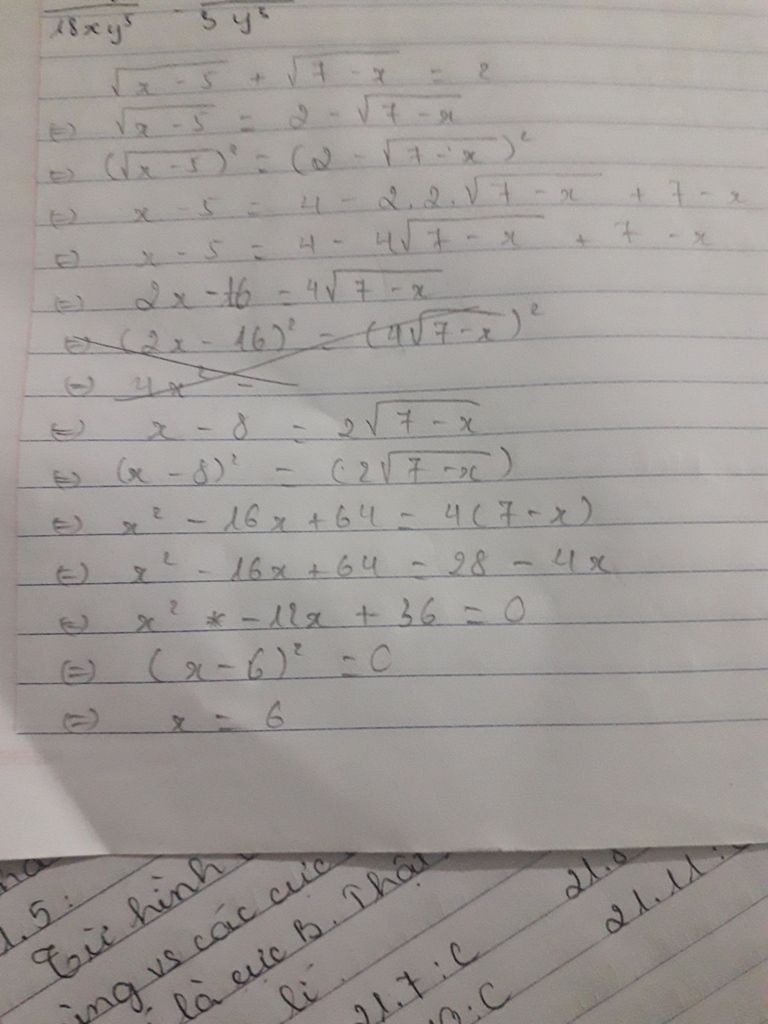 18xy⁵ - 5y³
√(x - 5) + √(7 - x) = 2
⇔ √(x - 5) = 2 - √(7 - x)
⇔ (√(x - 5))² = (2 - √(7 - x))²
⇔ x - 5 = 4 - 2.2.√(7 - x) + 7 - x
⇔ x - 5 = 4 - 4√(7 - x) + 7 - x
⇔ 2x - 16 = 4√(7 - x)
⇔ (2x - 16)² = (4√(7 - x))²
⇔ 4x² -
⇔ x - 8 = 2√(7 - x)
⇔ (x - 8)² = (2√(7 - x))
⇔ x² - 16x + 64 = 4(7 - x)
⇔ x² - 16x + 64 = 28 - 4x
⇔ x² * - 12x + 36 = 0
⇔ (x - 6)² = 0
⇔ x = 6
.5:
Từ hình
vs các cực
là cực B. Thậ
21.7: C
21.11: